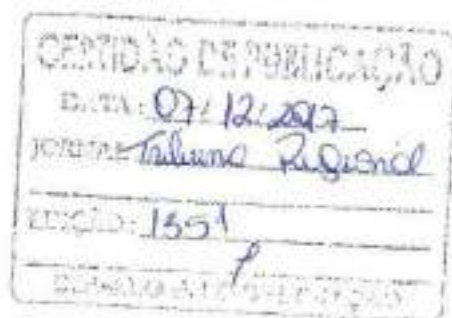 CERTIDÃO DE PUBLICAÇÃO
DATA: 07/12/2017
JORNAL Tribuna Regional
EDIÇÃO: 1351